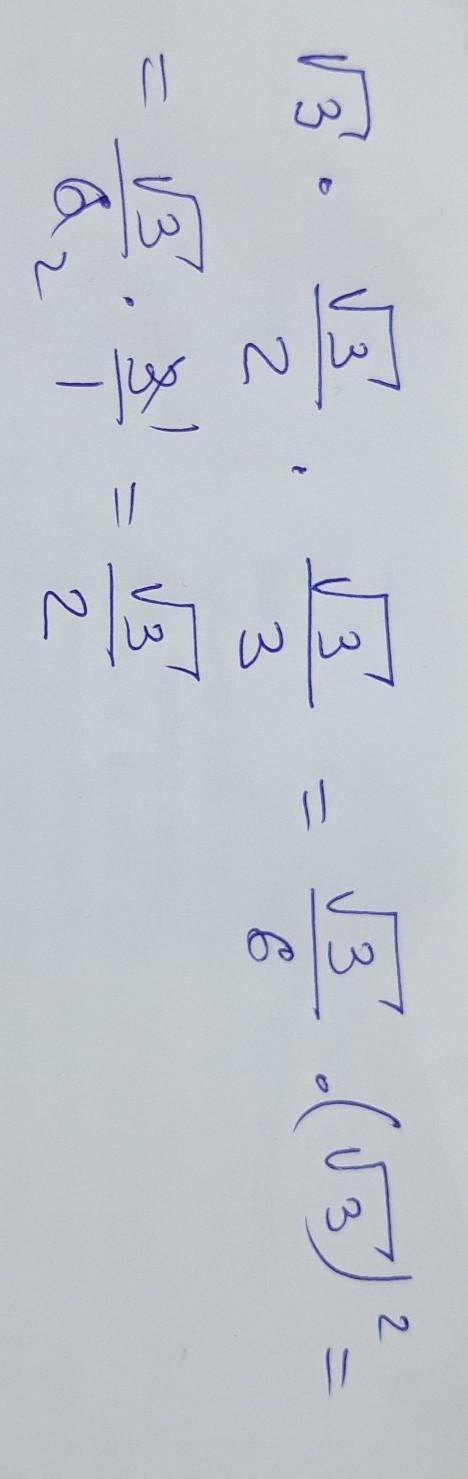 √3 · √3/2 · √3/3 = √3/6 · (√3)² =
= √3/6 2 · 3/1 1 = √3/2